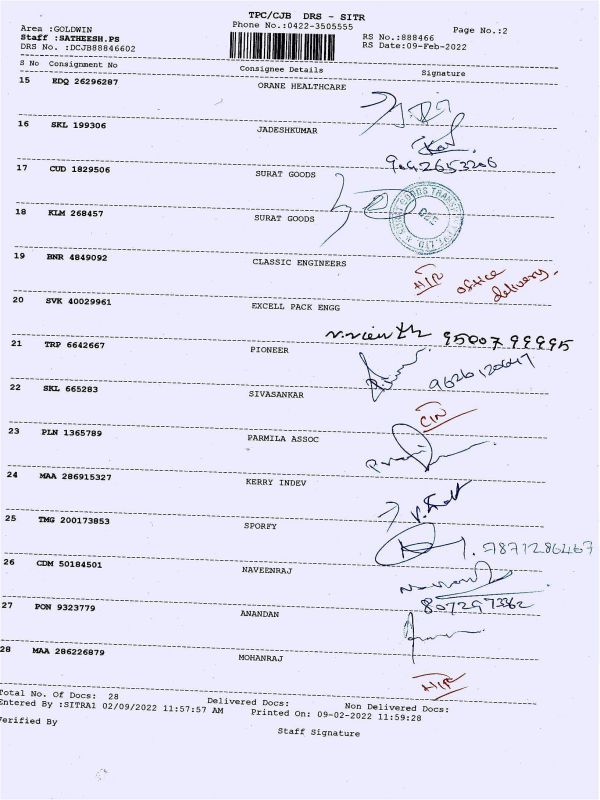 TPC/CJB DRS - SITR
Area :GOLDWIN Phone No.:0422-3505555 Page No.:2
Staff :SATHEESH.PS RS No.:888466
DRS No. :DCJB88846602 RS Date:09-Feb-2022
S No Consignment No Consignee Details Signature
15 EDQ 26296287 ORANE HEALTHCARE
16 SKL 199306 JADESHKUMAR
9092653206
17 CUD 1829506 SURAT GOODS
18 KLM 268457 SURAT GOODS
19 BNR 4849092 CLASSIC ENGINEERS
office delivery.
20 SVK 40029961 EXCELL PACK ENGG
95007 99995
21 TRP 6642667 PIONEER
9626120647
22 SKL 665283 SIVASANKAR
23 PLN 1365789 PARMILA ASSOC
24 MAA 286915327 KERRY INDEV
25 TMG 200173853 SPORFY
7871286467
26 CDM 50184501 NAVEENRAJ
8072973362
27 PON 9323779 ANANDAN
28 MAA 286226879 MOHANRAJ
Total No. Of Docs: 28 Delivered Docs: Non Delivered Docs:
Entered By :SITRA1 02/09/2022 11:57:57 AM Printed On: 09-02-2022 11:59:28
Verified By Staff Signature